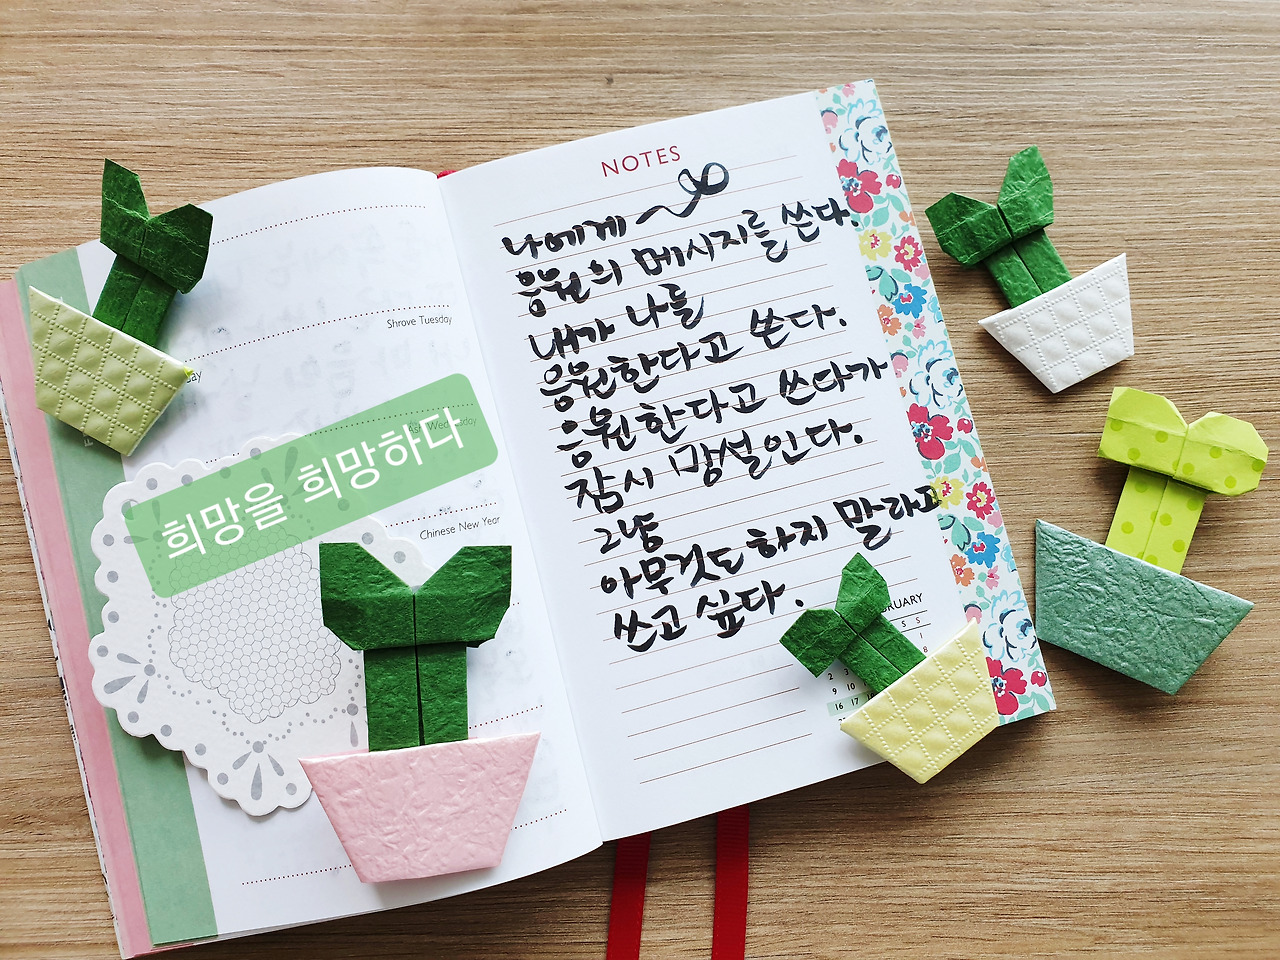 Shrove Tuesday
Ash Wednesday
Chinese New Year
희망을 희망하다
NOTES
나에게
응원의 메시지를 쓴다.
내가 나를
응원한다고 쓴다.
응원한다고 쓰다가
잠시 망설인다.
그냥
아무것도 하지 말라고
쓰고 싶다.
S S
1
8
2
9 10
16 17